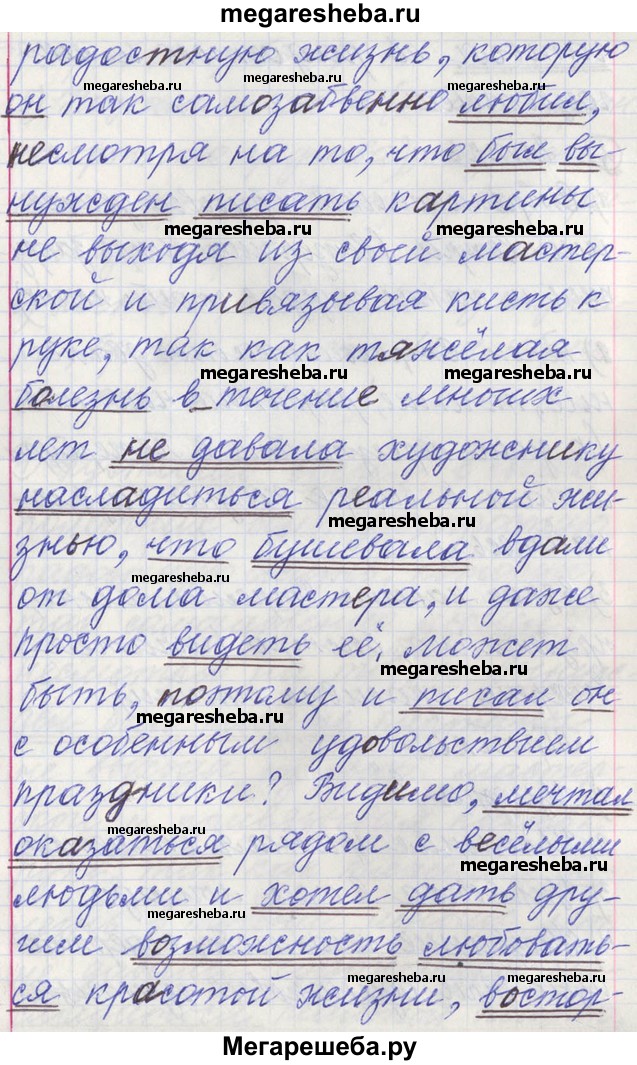 megaresheba.ru
радостную жизнь, которую
megaresheba.ru megaresheba.ru
он так самозабвенно любил,
несмотря на то, что был вы-
нужден писать картины
megaresheba.ru megaresheba.ru
не выходя из свой мастер-
ской и привязывая кисть к
руке, так как тяжёлая
megaresheba.ru megaresheba.ru
болезнь в течение многих
лет не давала художнику
насладиться реальной жи-
megaresheba.ru
знью, что бушевала вдали
megaresheba.ru
от дома мастера, и даже
просто видеть её, может
megaresheba.ru
быть, поэтому и писал он
megaresheba.ru
с особенным удовольствием
праздники? Видимо, мечтал
megaresheba.ru
оказаться рядом с весёлыми
megaresheba.ru
людьми и хотел дать дру-
megaresheba.ru
гим возможность любовать-
megaresheba.ru
ся красотой жизни, востор-
megaresheba.ru
Мегарешеба.ру